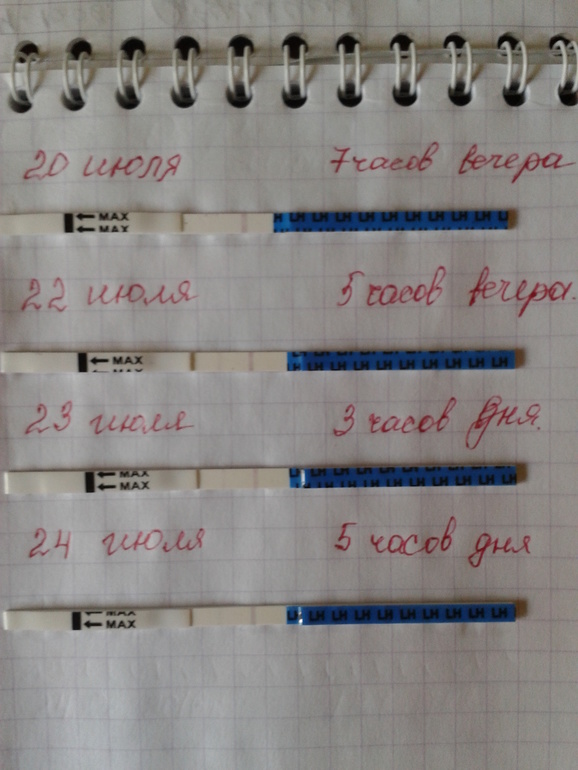 20 июля 7 часов вечера
MAX LH LH LH LH LH LH LH LH LH
MAX
22 июля 5 часов вечера.
MAX LH LH LH LH LH LH LH LH LH
23 июля 3 часов дня.
MAX LH LH LH LH LH LH LH LH LH
MAX
24 июля 5 часов дня
MAX
MAX LH LH LH LH LH LH LH LH LH